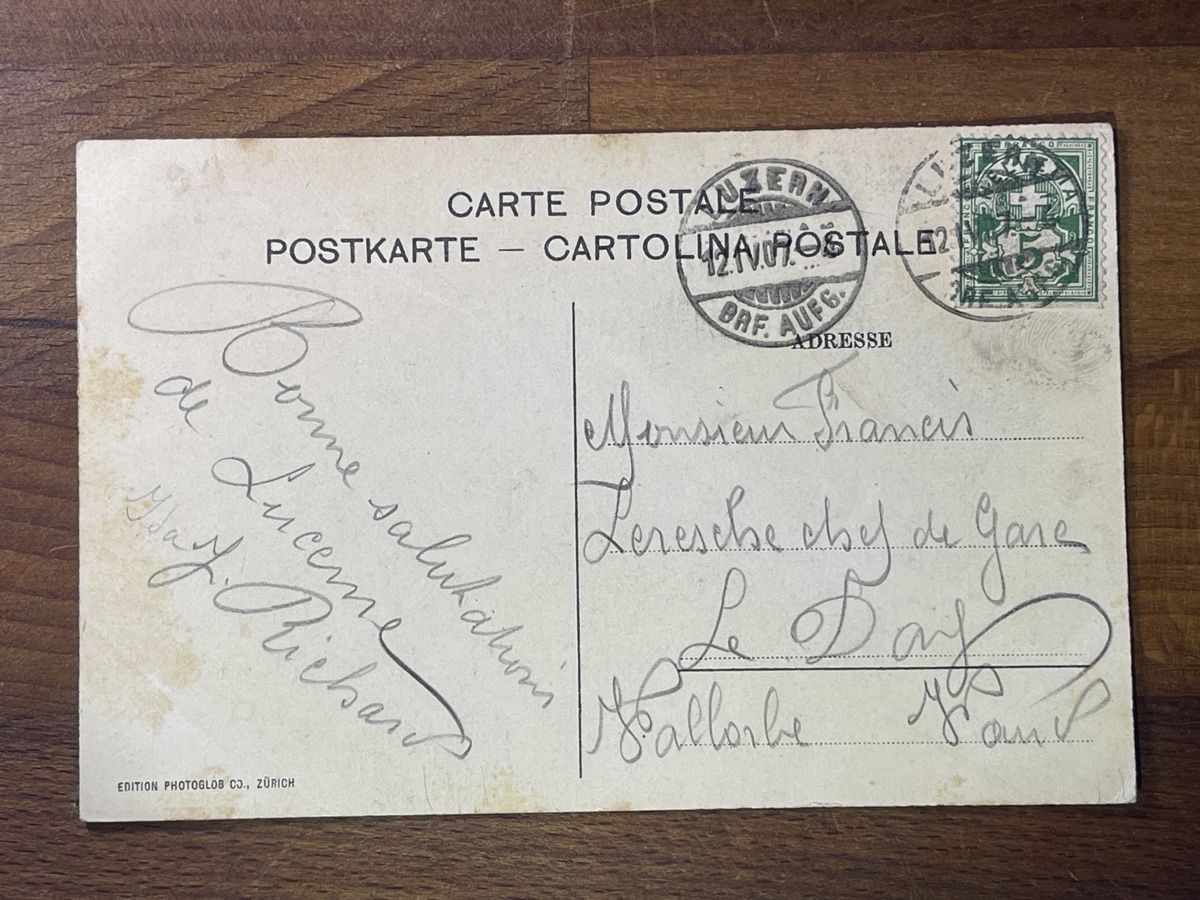 CARTE POSTALE
POSTKARTE — CARTOLINA POSTALE
LUZERN
12.IV.07.
BRF. AUFG.
LUZERN
BRF. AUFG.
FRANCO
5
ADRESSE
Bonne salutations
de Lucerne
Ida J. Richard
Monsieur Francis
Leresche chef de Gare
Le Day
Vallorbe Vaud
EDITION PHOTOGLOB CO., ZÜRICH